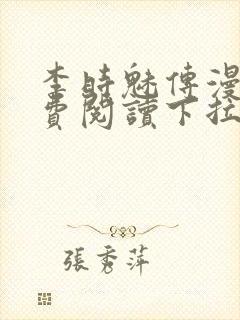 李時魅傳漫
費閱讀下拉
張秀萍